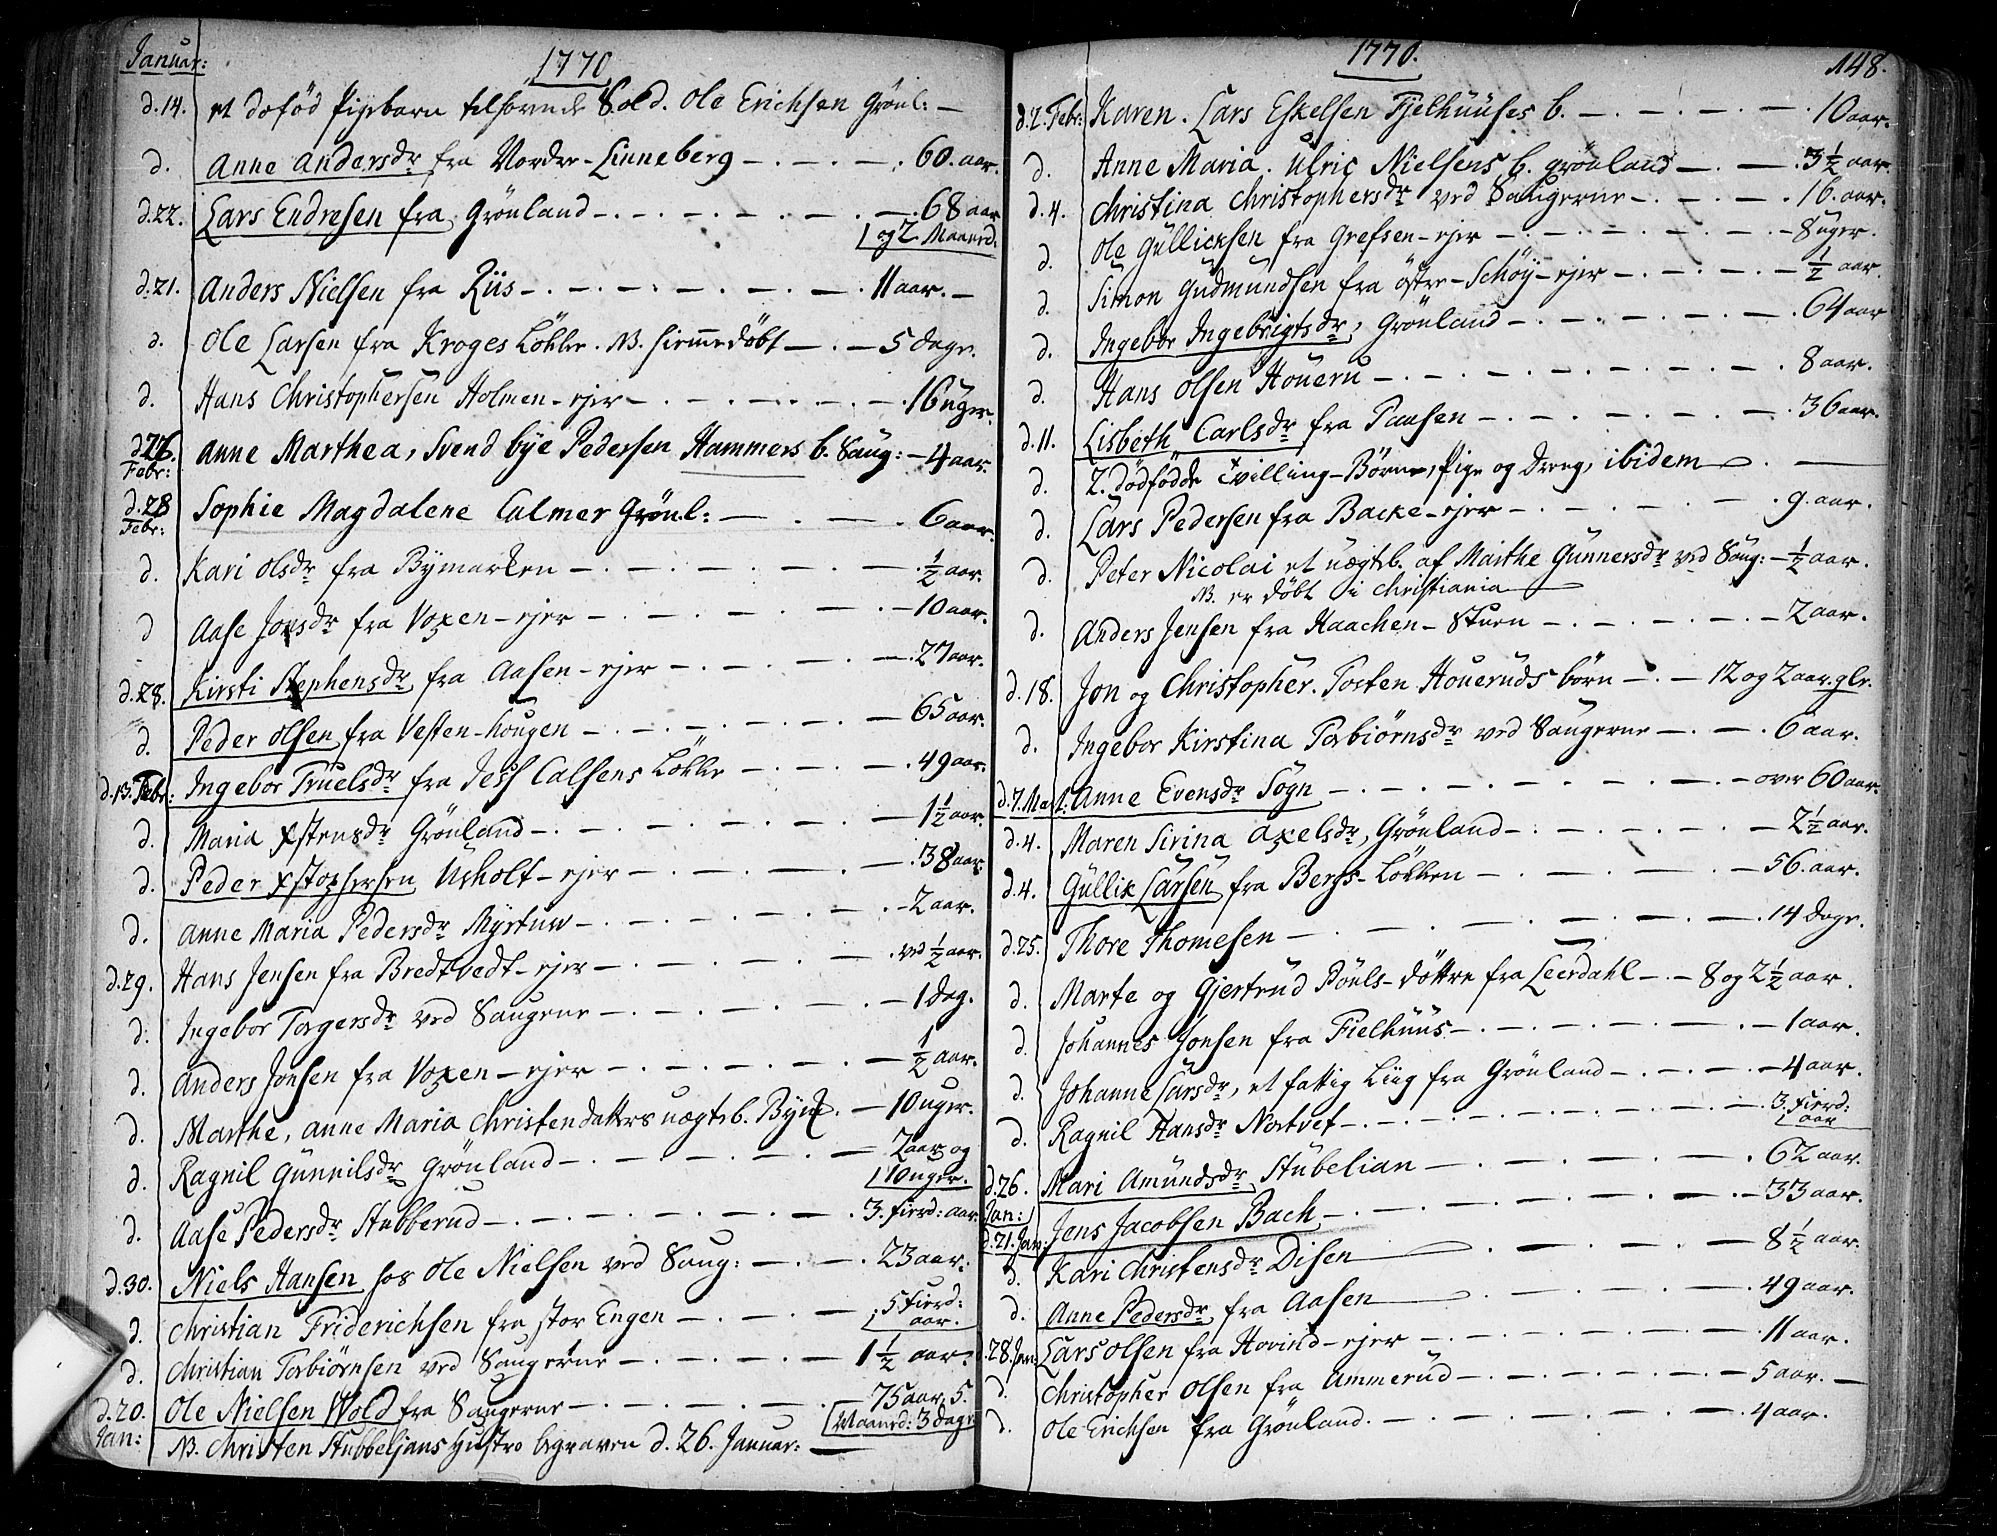 Januar: 1770
d.14. et døfød Pigebarn tilhørende Sold. Ole Erichsen Grönl: —
d. Anne Andersdr fra Nordre-Linneberg — 60. aar.
d.22. Lars Endresen fra Grönland — 68 aar
og 2 Maaned.
d.21. Anders Nielsen fra Riis — 11 aar. —
d. Ole Larsen fra Kroges Lökke. NB. hiemmedöbt — 5 dage.
d. Hans Christophersen Holmen-ejer — 16 uger.
d.26. Febr: Anne Marthea, Svend bye Pedersen Hammers b. Saug: — 4 aar.
d.28 Febr: Sophie Magdalene Calmer Grönl: — 6 aar.
d. Kari Olsdr fra Bymarken — ½ aar.
d Aase Jonsdr fra Voxen-ejer — 10 aar.
d.28. Kirsti Stephensdr fra Aasen-ejer — 27 aar.
d. Peder Olsen fra Vesten-hougen — 65 aar.
d.13. Febr: Ingebor Truelsdr fra Jess Calsens Lökke — 49 aar.
d. Maria Xstensdr Grönland — 1½ aar.
d. Peder Xstophersen Usholt-ejer — 38 aar.
d. Anne Maria Pedersdr Myrstuw — 2 aar.
d.29. Hans Jensen fra Bredtvedt-ejer — ved ½ aar.
d. Ingebor Torgersdr ved Saugene — 1 dag.
d. Anders Jonsen fra Voxen-ejer — ½ aar.
d. Marthe, Anne Maria Christendatters uægteb. Bym. — 10 uger.
d. Ragnil Gunnilsdr Grönland — 2 aar og
10 uger.
d. Aase Pedersdr Stubberud — 3. fierd: aar.
d.30. Niels Hansen hos Ole Nielsen ved Saug: — 23 aar.
d. Christian Friderichsen fra stor Engen — 5 fierd: aar.
d. Christian Torbiörnsen ved Saugerne — 1½ aar.
d.20. Jan: Ole Nielsen Wold fra Saugerne — 75 aar, 5.
Maaned: 3 dage
NB. Christen Stubbeljans Hustro begraven d. 26. Januar: —
1770. 148.
d.2. Febr: Karen. Lars Eskelsen Fjelhuuses b. — 10 aar.
d. Anne Maria. Ulric Nielsens b. Grönland — 3½ aar
d.4. Christina Christophersdr ved Saugerne — 16. aar.
d. Ole Gullicksen fra Grefsen-ejer — 8 uger.
d. Simon Gudmundsen fra östre-Schöy-ejer — ½ aar.
d. Ingebor Ingebrigtsdr, Grönland — 64 aar
d. Hans Olsen Houeru — 8 aar.
d.11. Lisbeth Carlsdr fra Paasen — 36 aar.
d. 2. dödfödde tvilling-Börn, Pige og Dreng, ibidem —
d. Lars Pedersen fra Backe-ejer — 9. aar.
d. Peter Nicolai et uægteb. af Marthe Gunnersdr ved Saug: — ½ aar.
NB. er döbt i Christiania
d. Anders Jensen fra Haachen-Stuen — 2 aar.
d.18. Jon og Christopher. Torsten Houeruds börn — 12 og 2 aar. glr.
d. Ingebor Kirstina Torbiörnsdr ved Saugerne — 6 aar.
d.7. Mart: Anne Evensdr Sogn — over 60 aar.
d.4. Maren Sirina Axelsdr, Grönland — 2½ aar.
d.4. Gullik Larsen fra Bergs-Lökken — 56. aar.
d.25. Thore Thomesen — 14 dage.
d. Marte og Gjertrud Pouls-döttre fra Leerdahl — 8 og 2½ aar.
d. Johannes Jonsen fra Fielhuus — 1 aar.
d. Johanne Larsdr, et fattig Liig fra Grönland — 4 aar.
d. Ragnil Hansdr Nortvet — 3. fierd: aar
d.26. Jan: Mari Amundsdr Stubelian — 62 aar.
Jens Jacobsen Bach — 33 aar.
d.21. Jan: Kari Christensdr Disen — 8½ aar.
d. Anne Pedersdr fra Aasen — 49 aar.
d.28. Jan: Lars Olsen fra Hovind-ejer — 11 aar.
d. Christopher Olsen fra Ammerud — 5 aar. —
d. Ole Erichsen fra Grönland. — 4 aar.